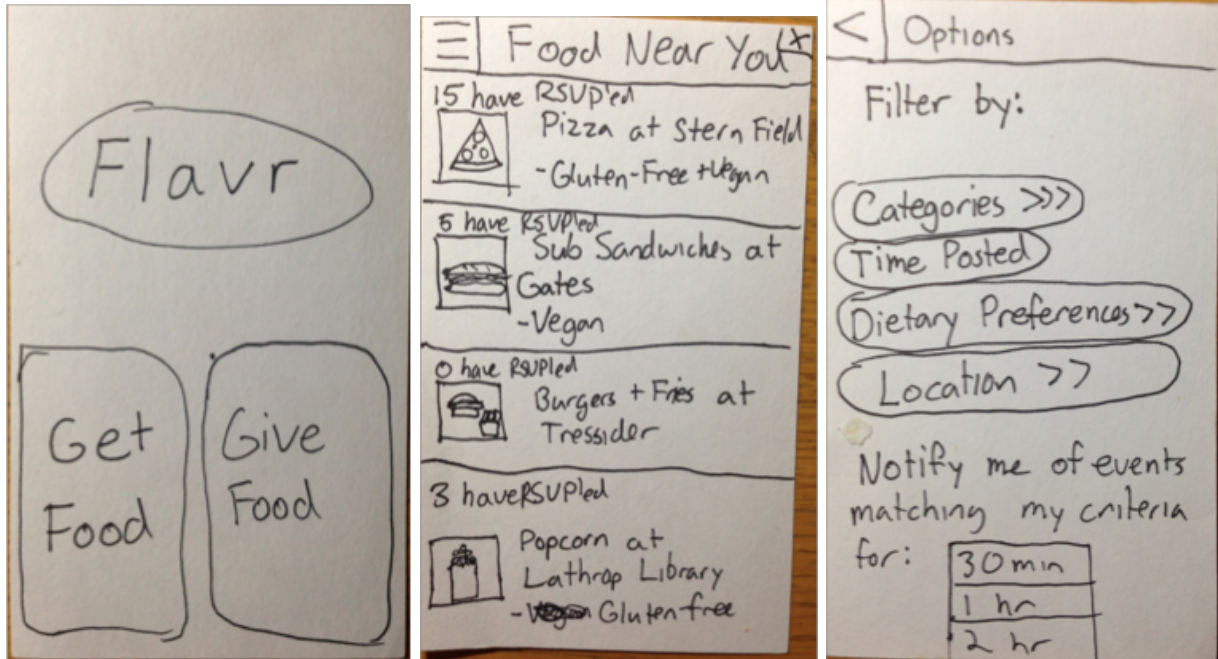 Flavr
Get
Food
Give
Food
Food Near You
15 have RSVP'ed
Pizza at Stern Field
-Gluten-Free + Vegan
5 have RSVPled
Sub Sandwiches at
Gates
-Vegan
0 have RSVPled
Burgers + Fries at
Tressider
3 have RSVPled
Popcorn at
Lathrop Library
- Gluten free
< Options
Filter by:
Categories >>>
Time Posted
Dietary Preferences >>
Location >>
Notify me of events
matching my criteria
for:
30 min
1 hr
2 hr